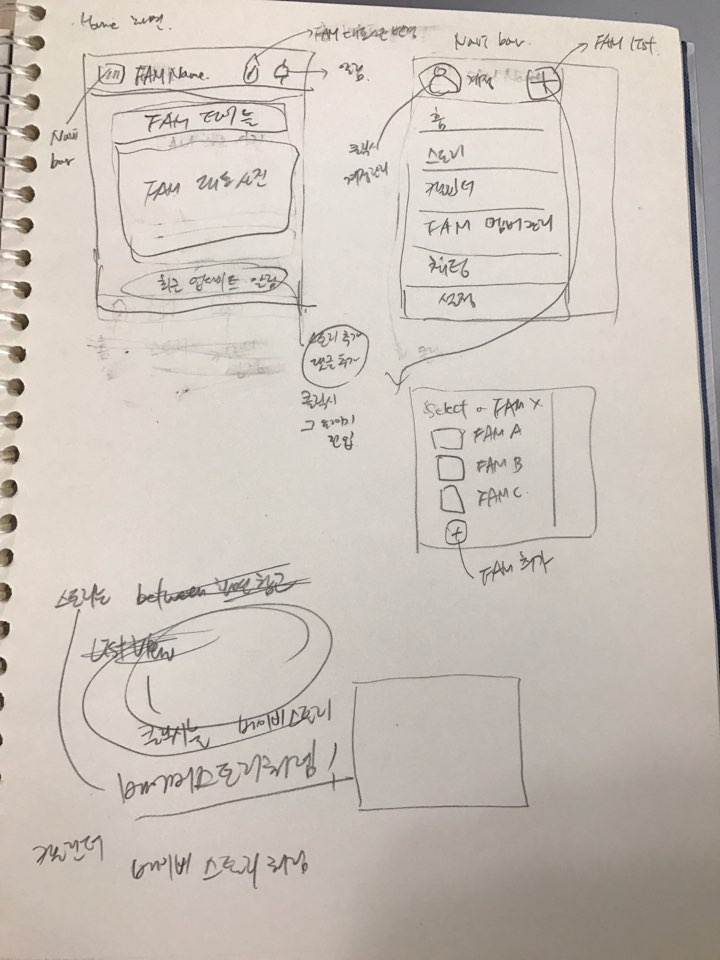 Home 화면.
FAM 대표사진 변경
FAM Name.
알림
Navi bar
FAM 타이틀
FAM 대표사진
최근 업데이트 알림
스토리 추가
댓글 추가
클릭시
그 페이지
진입
Navi bar.
FAM list.
계정
클릭시
계정관리
홈
스토리
캘린더
FAM 멤버관리
채팅
설정
Select a FAM X
FAM A
FAM B
FAM C.
+
FAM 추가
스토리는 between
List View
클릭시는 베이비스토리
베이비스토리처럼!
캘린더 베이비 스토리 처럼